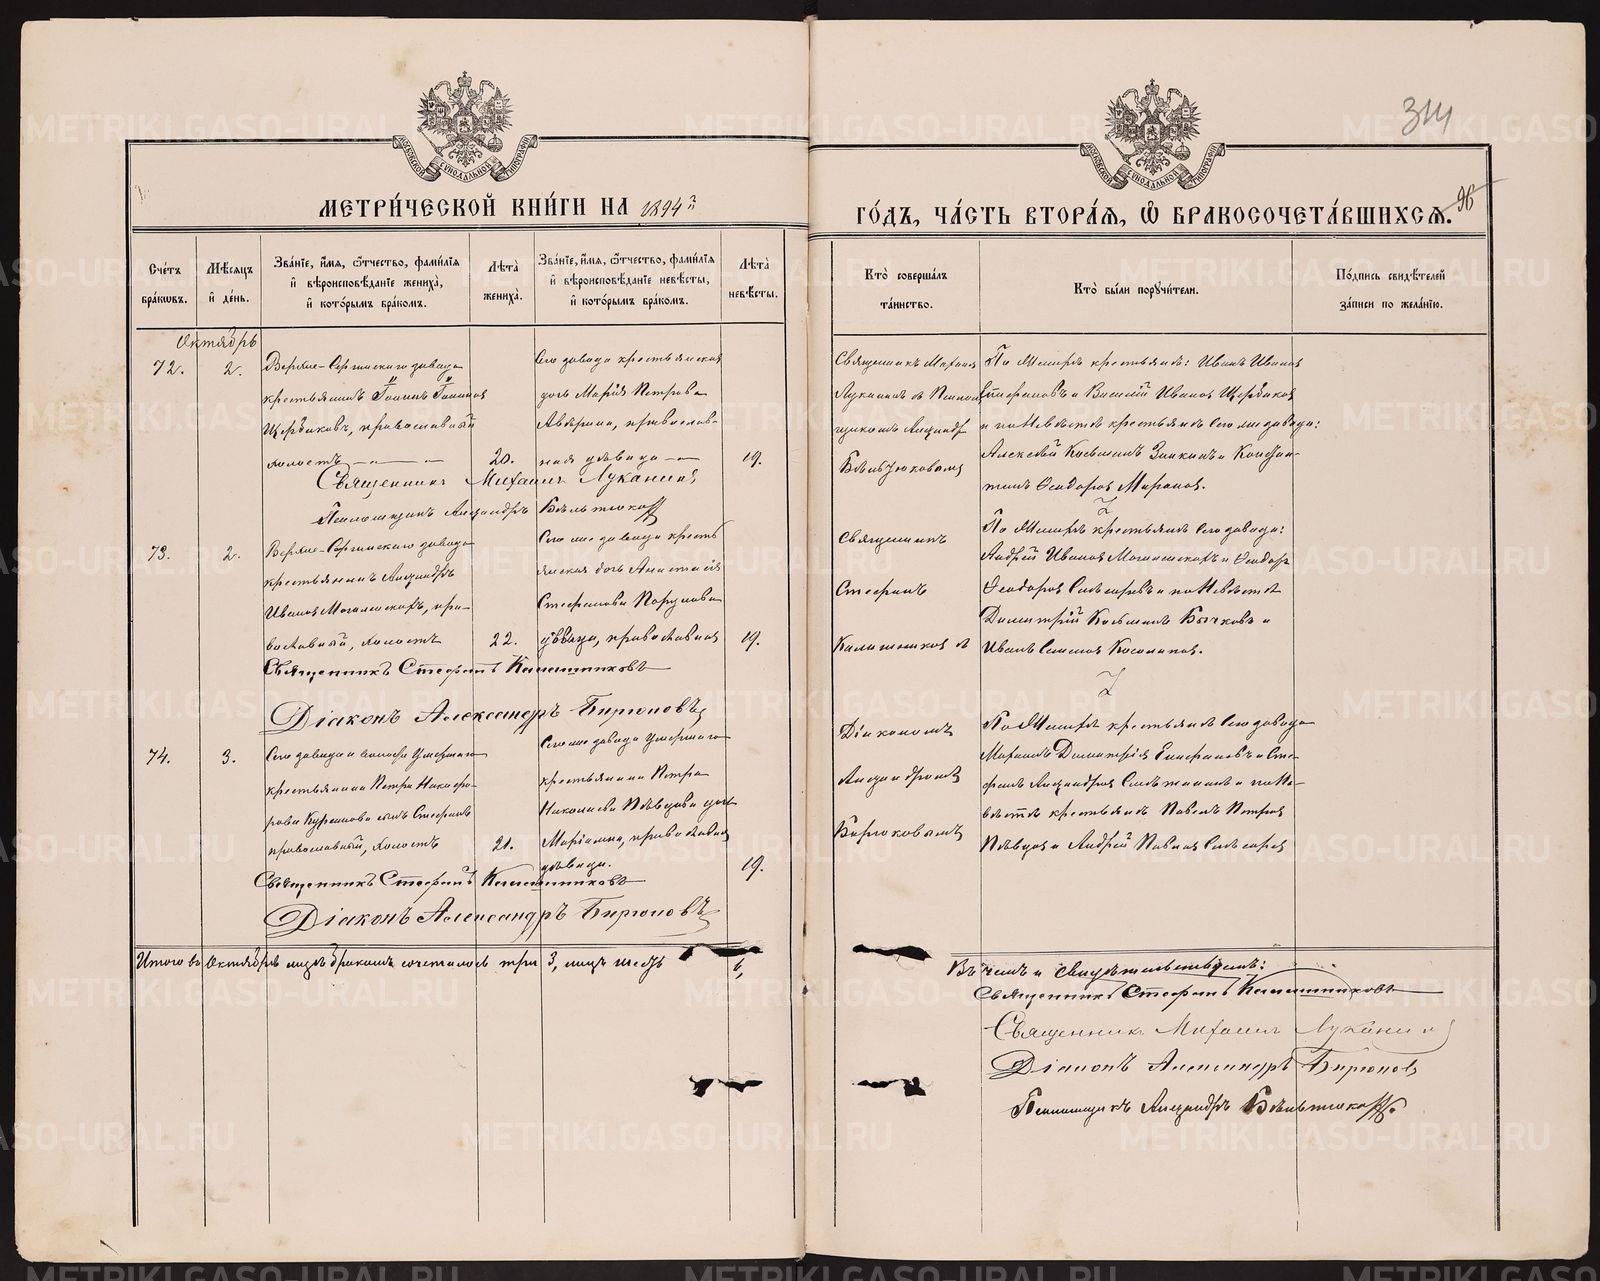 314
96
МЕТРИ́ЧЕСКОЙ КНИ́ГИ НА 1894й
ГО́ДЪ, ЧА́СТЬ ВТОРА́Я, Ѽ БРАКОСОЧЕТА́ВШИХСЯ.
Сче́тъ бра́ковъ.
Мѣ́сяцъ и҆ де́нь.
Зва́нїе, и҆́мя, ѻ҆́тчество, фами́лїя и҆ вѣроисповѣ́данїе жениха̀, и҆ кото́рымъ бра́комъ.
Лѣ́та жениха̀.
Зва́нїе, и҆́мя, ѻ҆́тчество, фами́лїя и҆ вѣроисповѣ́данїе невѣ́сты, и҆ кото́рымъ бра́комъ.
Лѣ́та невѣ́сты.
Кто̀ соверша́лъ та́инство.
Кто̀ бы́ли поручи́тели.
По́дпись свидѣ́телей за́писи по жела́нїю.
Октябрь
72.
2.
Верхне-Сергинскаго завода
крестьянинъ Іоаннъ Іоанновъ
Щербаковъ, православный
холостъ
20.
Сего завода крестьянская
дочь Марія Петрова
православ-
ная дѣвица
19.
Священникъ Михаилъ
Лукинъ съ Псалом-
щикомъ Александр.
По Женихѣ крестьяне: Иванъ Ивановъ
и Василій Ивановъ Щербаковъ
и по Невѣстѣ крестьяне Сего же завода:
Алексѣй Козьминъ Заикинъ и Констан-
тинъ Ѳеодоровъ Мироновъ.
Священникъ Михаилъ Луканинъ
Псаломщикъ Александръ
73.
2.
Верхне-Сергинскаго завода
крестьянинъ Александръ
Ивановъ пра-
вославный, холостъ
22.
Сего же завода кресть
янская дочь Анастасія
Стефанова
дѣвица, православная
19.
Священникъ
Стефанъ
Калашниковъ
По Женихѣ крестьяне Сего завода:
Андрей Ивановъ и Ѳеодоръ
Ѳеодоровъ и по Невѣстѣ
Димитрій Козьминъ Бычковъ и
Иванъ
Священникъ Стефанъ Калашниковъ
Діаконъ Александръ Бирюковъ
74.
3.
Сего завода
крестьянина Петра Никифо-
рова сынъ Стефанъ
православный, холостъ
21.
Сего же завода умершаго
крестьянина Петра
Николаева Пѣвцова дочь
Маріамна, православная
дѣвица.
19.
Діакономъ
Александромъ
Бирюковымъ
По Женихѣ крестьяне Сего завода
Михаилъ Димитріевъ и Сте-
фанъ Александровъ и по Не-
вѣстѣ крестьяне Павелъ Петровъ
Пѣвцовъ и Андрей Павловъ
Священникъ Стефанъ Калашниковъ
Діаконъ Александръ Бирюковъ
Итого въ Октябрѣ мцѣ бракомъ сочеталось три 3, лицъ шесть 6,
Въ чемъ и свидѣтельствуемъ:
Священникъ Стефанъ Калашниковъ
Священникъ Михаилъ Луканинъ
Діаконъ Александръ Бирюковъ
Псаломщикъ Александръ
METRIKI.GASO-URAL.RU